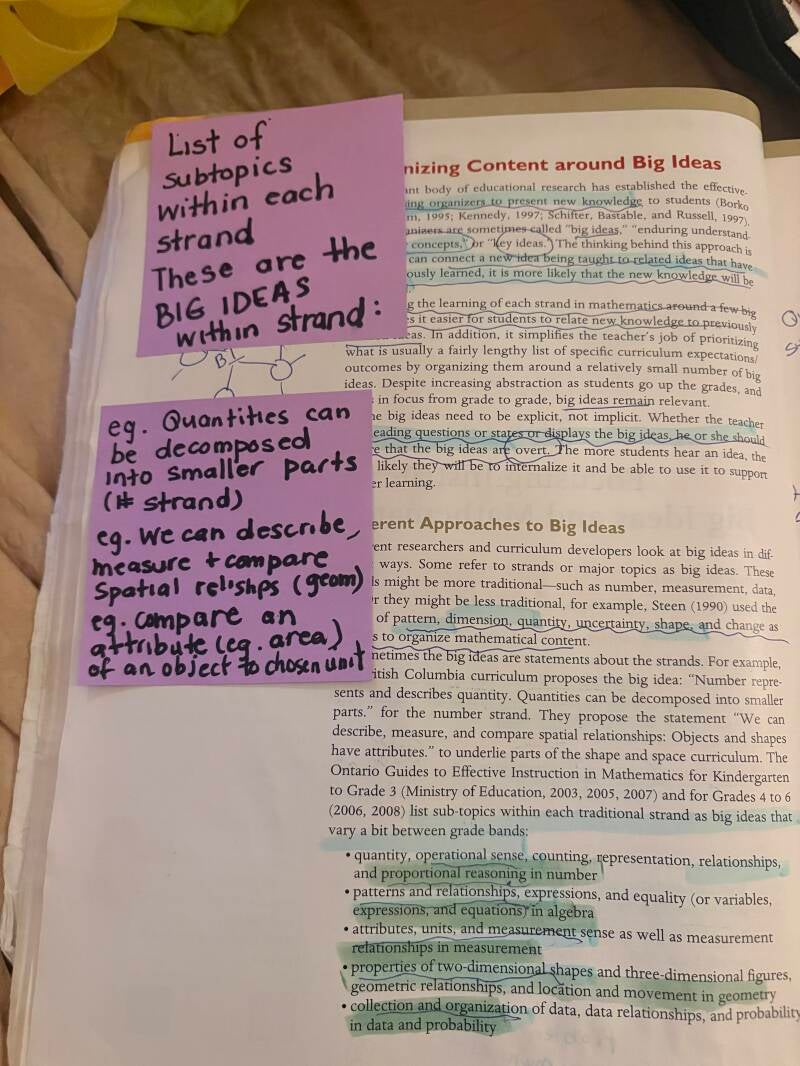 List of
subtopics
within each
strand
These are the
BIG IDEAS
within strand:
eg. Quantities can
be decomposed
into smaller parts
(# strand)
eg. We can describe,
measure + compare
Spatial relishps (geom)
eg. compare an
attribute (eg. area)
of an object to chosen unit
nizing Content around Big Ideas
nt body of educational research has established the effective-
ing organizers to present new knowledge to students (Borko
m, 1995; Kennedy, 1997; Schifter, Bastable, and Russell, 1997).
anizers are sometimes called "big ideas," "enduring understand-
concepts," or "key ideas." The thinking behind this approach is
can connect a new idea being taught to related ideas that have
ously learned, it is more likely that the new knowledge will be
g the learning of each strand in mathematics around a few big
s it easier for students to relate new knowledge to previously
eas. In addition, it simplifies the teacher's job of prioritizing
what is usually a fairly lengthy list of specific curriculum expectations/
outcomes by organizing them around a relatively small number of big
ideas. Despite increasing abstraction as students go up the grades, and
in focus from grade to grade, big ideas remain relevant.
e big ideas need to be explicit, not implicit. Whether the teacher
eading questions or states or displays the big ideas, he or she should
e that the big ideas are overt. The more students hear an idea, the
likely they will be to internalize it and be able to use it to support
er learning.
erent Approaches to Big Ideas
ent researchers and curriculum developers look at big ideas in dif-
ways. Some refer to strands or major topics as big ideas. These
s might be more traditional—such as number, measurement, data,
r they might be less traditional, for example, Steen (1990) used the
of pattern, dimension, quantity, uncertainty, shape, and change as
s to organize mathematical content.
metimes the big ideas are statements about the strands. For example,
itish Columbia curriculum proposes the big idea: "Number repre-
sents and describes quantity. Quantities can be decomposed into smaller
parts." for the number strand. They propose the statement "We can
describe, measure, and compare spatial relationships: Objects and shapes
have attributes." to underlie parts of the shape and space curriculum. The
Ontario Guides to Effective Instruction in Mathematics for Kindergarten
to Grade 3 (Ministry of Education, 2003, 2005, 2007) and for Grades 4 to 6
(2006, 2008) list sub-topics within each traditional strand as big ideas that
vary a bit between grade bands:
• quantity, operational sense, counting, representation, relationships,
and proportional reasoning in number
• patterns and relationships, expressions, and equality (or variables,
expressions, and equations) in algebra
• attributes, units, and measurement sense as well as measurement
relationships in measurement
• properties of two-dimensional shapes and three-dimensional figures,
geometric relationships, and location and movement in geometry
• collection and organization of data, data relationships, and probability
in data and probability